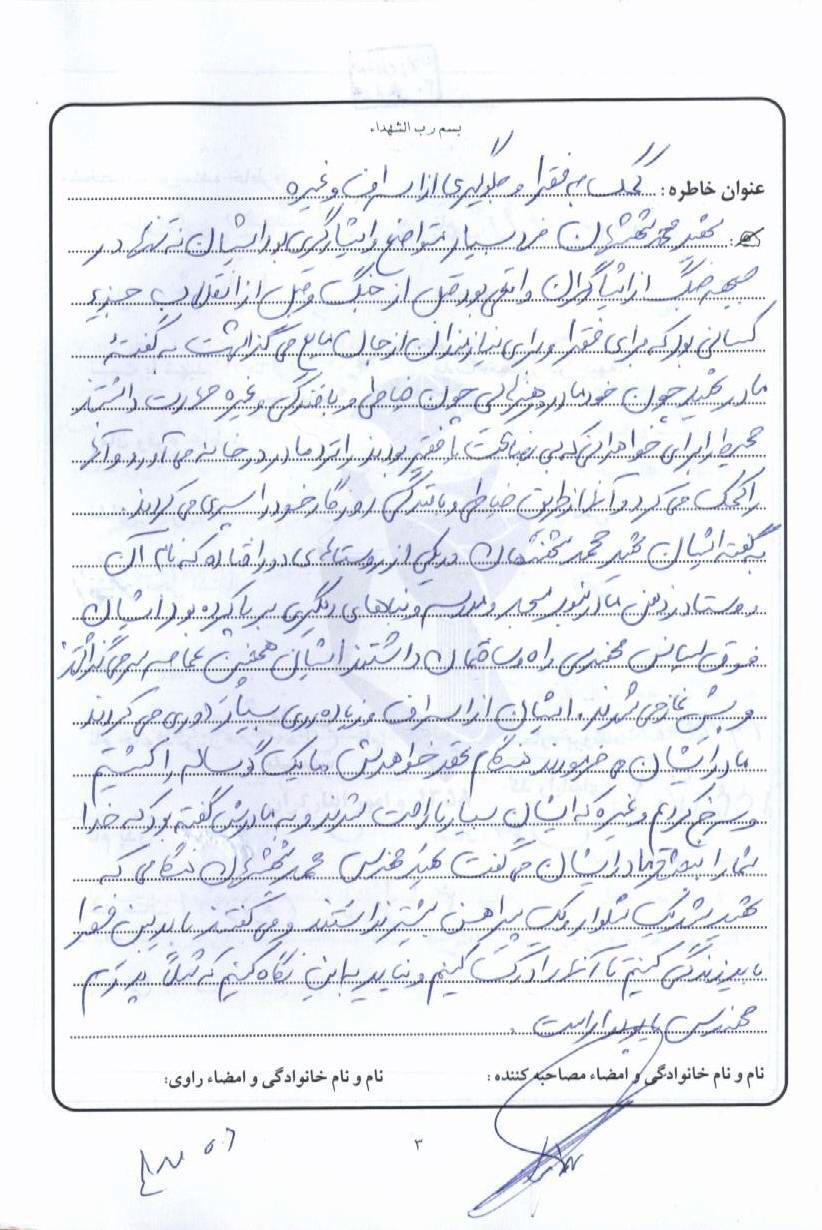 بسم رب الشهداء
عنوان خاطره: کمک به فقرا و جلوگیری از اسراف و غیره
شهید محمد فرد بسیار متواضع و ایثارگری بود ایشان نه تنها در
جبهه جنگ از ایثارگران واقعی بود قبل از جنگ و قبل از انقلاب جزء
کسانی بود که برای فقرا و برای نیازمندان از جان مایه می گذاشت به گفته
مادر شهید چون خود مادر هنرهایی چون خیاطی و بافندگی و غیره مهارت داشتند
محیط را برای خواهرانی که بی بضاعت یا فقیر بودند را نزد مادر در خانه می آورد و آنها
را کمک می کرد و آنها از طریق خیاطی و بافندگی روزگار خود را سپری می کردند.
به گفته ایشان شهید محمد در یکی از روستاهای دور افتاده که نام آن
روستا در ذهن مادر نبود مسجد و مدرسه و بناهای دیگری بر پا کرده بود ایشان
فوق لیسانس مهندسی راه و ساختمان داشتند ایشان همچنین عمامه سر می گذاشتند
و پیش نماز می شدند. ایشان از اسراف و زیاده روی بسیار دوری می کردند
مادر ایشان می فرمودند هنگام عقد خواهرش ما یک گوساله را کشتیم
و سرخ کردیم و غیره که ایشان بسیار ناراحت شدند و به مادرش گفته بود که خدا
شما را مادر ایشان می گفت شهید مهندس محمد هنگامی که
شهید شد یک شلوار و یک پیراهن بیشتر نداشتند و می گفتند ما بین فقرا
باید زندگی کنیم تا آنها را درک کنیم و نباید به این نگاه کنیم که مثلاً پدرم
مهندس یا پولدار است.
نام و نام خانوادگی و امضاء مصاحبه کننده : نام و نام خانوادگی و امضاء راوی:
۳